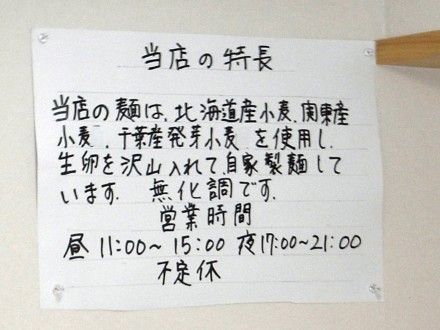 当店の特長
当店の麺は、北海道産小麦、関東産
小麦、千葉産発芽小麦、を使用し、
生卵を沢山入れて、自家製麺して
います。 無化調です。
営業時間
昼 11:00～ 15:00 夜17:00～21:00
不定休